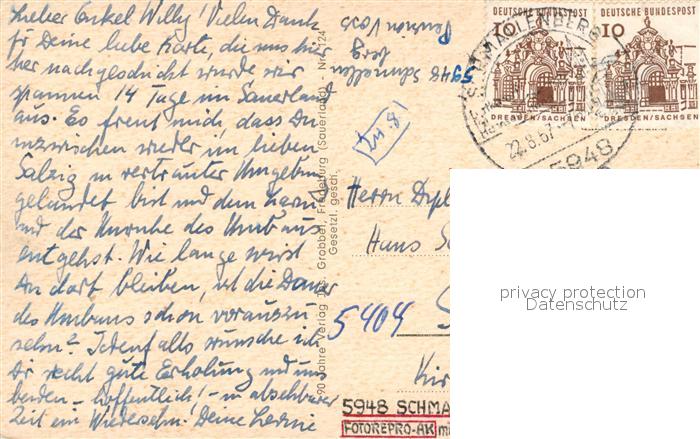 Lieber Onkel Willy! Vielen Dank
für Deine liebe Karte, die uns hier
her nachgeschickt wurde wir
spannen 14 Tage im Sauerland
aus. Es freut mich, dass Du
inzwischen wieder im lieben
Salzig in vertrauter Umgebung
gelandet bist und dem Lärm
und der Unruhe des Umbaus
entgehst. Wie lange wirst
Du dort bleiben, ist die Dauer
des Umbaus schon vorauszu
sehn? Jedenfalls wünsche ich
Dir recht gute Erholung und uns
beiden - hoffentlich! - in absehbarer
Zeit ein Wiedersehn. Deine
Pension Voss
5948 Schmallen
berg
90 Jahre Verlag Jos. Grobbel, Fredeburg (Sauerland) Nr. 424
Gesetzl. gesch.
DEUTSCHE BUNDESPOST
10
DRESDEN/SACHSEN
DEUTSCHE BUNDESPOST
10
DRESDEN/SACHSEN
SCHMALLENBERG
22.8.67
5948
Herrn Dipl
Hans
5404
Kir
5948 SCHMA
FOTOREPRO-AK mi
privacy protection
Datenschutz